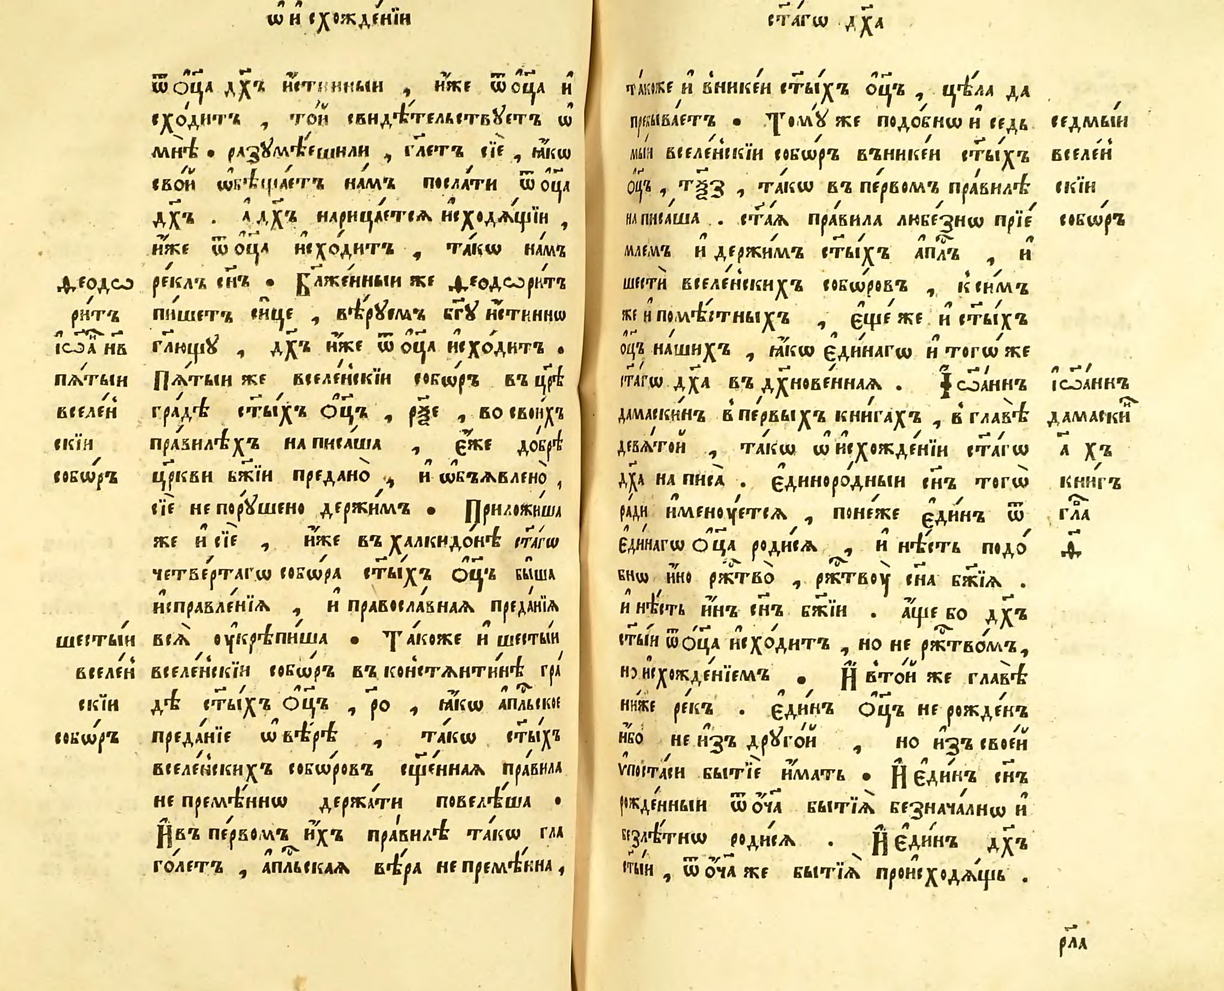 ѿ и҆схожде́нїи
ѿ ѻ҆ц҃а дх҃ъ и҆́стинныи , и҆́же ѿ ѻ҆ц҃а и҆
схо́дитъ , то́й свидѣ́тельствꙋетъ ѡ҆
мнѣ̀ . разꙋмѣ́еши ли , гл҃етъ сїѐ , ꙗ҆́кѡ
сво́й ѡ҆бѣща́етъ на́мъ посла́ти ѿ ѻ҆ц҃а
дх҃ъ . а҆ дх҃ъ нарица́етсѧ и҆сходѧ́щїи ,
и҆́же ѿ ѻ҆ц҃а и҆схо́дитъ , та́кѡ на́мъ
ѳеодѡ
ре́клъ сн҃ъ . Бл҃же́нныи же ѳеодѡри́тъ
ри́тъ
пи́шетъ си́це , вѣ́рꙋемъ бг҃ꙋ и҆́стиннѡ
і҆ѡа́нъ
гл҃ющꙋ , дх҃ъ и҆́же ѿ ѻ҆ц҃а и҆схо́дитъ .
пѧ́тыи
Пѧ́тыи же вселе́нскїи собѡ́ръ въ цр҃ѣ
вселе́н
гра́дѣ ст҃ы́хъ ѻ҆ц҃ъ , рѯ҃е , во свои́хъ
скїи
пра́вилѣхъ написа́ша , є҆́же до́брѣ
собѡ́ръ
цр҃кви бж҃їи предано̀ , и҆ ѡ҆бъѧвлено̀ ,
сїѐ непорꙋ́шено держи́мъ . Приложи́ша
же и҆ сїѐ , и҆́же въ халкидо́нѣ ст҃а́гѡ
четве́ртагѡ собѡ́ра ст҃ы́хъ ѻ҆ц҃ъ бы́ша
и҆справле́нїѧ , и҆ правосла́внаѧ преда́нїѧ
шесты́и
всѧ̀ ѹ҆крѣпи́ша . Та́коже и҆ шесты́и
вселе́н
вселе́нскїи собѡ́ръ въ константи́нѣ гра́
скїи
дѣ ст҃ы́хъ ѻ҆ц҃ъ , ро , ꙗ҆́кѡ а҆пⷭ҇льское
собѡ́ръ
преда́нїе ѡ҆ вѣ́рѣ , та́кѡ ст҃ы́хъ
вселе́нскихъ собѡ́ровъ сщ҃е́ннаѧ пра́вила
непремѣ́ннѡ держа́ти повелѣ́ша .
И҆ въ пе́рвомъ и҆́хъ пра́вилѣ та́кѡ гла
го́летъ , а҆пⷭ҇льскаѧ вѣ́ра непремѣ́нна ,
ст҃а́гѡ дх҃а
та́коже и҆ в̾нике́и ст҃ы́хъ ѻ҆ц҃ъ , цѣ́ла да
пребыва́етъ . Томꙋ́ же подо́бнѡ и҆ седь
седмы́и
мы́и вселе́нскїи собѡ́ръ въ нике́и ст҃ы́хъ
вселе́н
ѻ҆ц҃ъ , тѯ҃з , та́кѡ въ пе́рвомъ пра́вилѣ
скїи
написа́ша . ст҃а́ѧ пра́вила любе́знѡ прїе́
собѡ́ръ
млемъ и҆ держи́мъ ст҃ы́хъ а҆пⷭ҇лъ , и҆
шести́ вселе́нскихъ собѡ́ровъ , к си́мъ
же и҆ помѣ́стныхъ , є҆ще́ же и҆ ст҃ы́хъ
ѻ҆ц҃ъ на́шихъ , ꙗ҆́кѡ є҆ди́нагѡ и҆ тогѡ́ же
ст҃а́гѡ дх҃а въдх҃нове́ннаѧ . І҆ѡа́ннъ
і҆ѡа́ннъ
дамаски́нъ в̾ пе́рвыхъ кни́гахъ , в̾ главѣ̀
дамаски́н
девѧ́той , та́кѡ ѡ҆ и҆схожде́нїи ст҃а́гѡ
а҃ хъ
дх҃а написа̀ . є҆диноро́дныи сн҃ъ тогѡ̀
кни́гъ
ра́ди и҆менѹ́етсѧ , поне́же є҆ди́нъ ѿ
гла
є҆ди́нагѡ ѻ҆ц҃а роди́сѧ , и҆ нѣ́сть подо́
ѳ
бнѡ и҆́но ржⷭ҇тво̀ , ржⷭ҇твѹ̀ сн҃а бж҃їѧ .
и҆ нѣ́сть и҆́нъ сн҃ъ бж҃їи . а҆́ще бо дх҃ъ
ст҃ы́и ѿ ѻ҆ц҃а и҆схо́дитъ , но не ржⷭ҇тво́мъ,
но и҆схожде́нїемъ . И҆ в̾ то́й же главѣ̀
ни́же ре́къ . є҆ди́нъ ѻ҆ц҃ъ не рожде́нъ
и҆́бо не и҆з̾ дрꙋго́й , но и҆з̾ свое́й
ѵ҆поста́си бытїѐ и҆́мать . И҆ є҆ди́нъ сн҃ъ
рожде́нныи ѿ ѻ҆́ча бытїѧ̀ безнача́лнѡ и҆
безлѣ́тнѡ роди́сѧ . И҆ є҆ди́нъ дх҃ъ
ст҃ы́и , ѿ ѻ҆́ча же бытїѧ̀ происходѧ́щь .
рл҃а